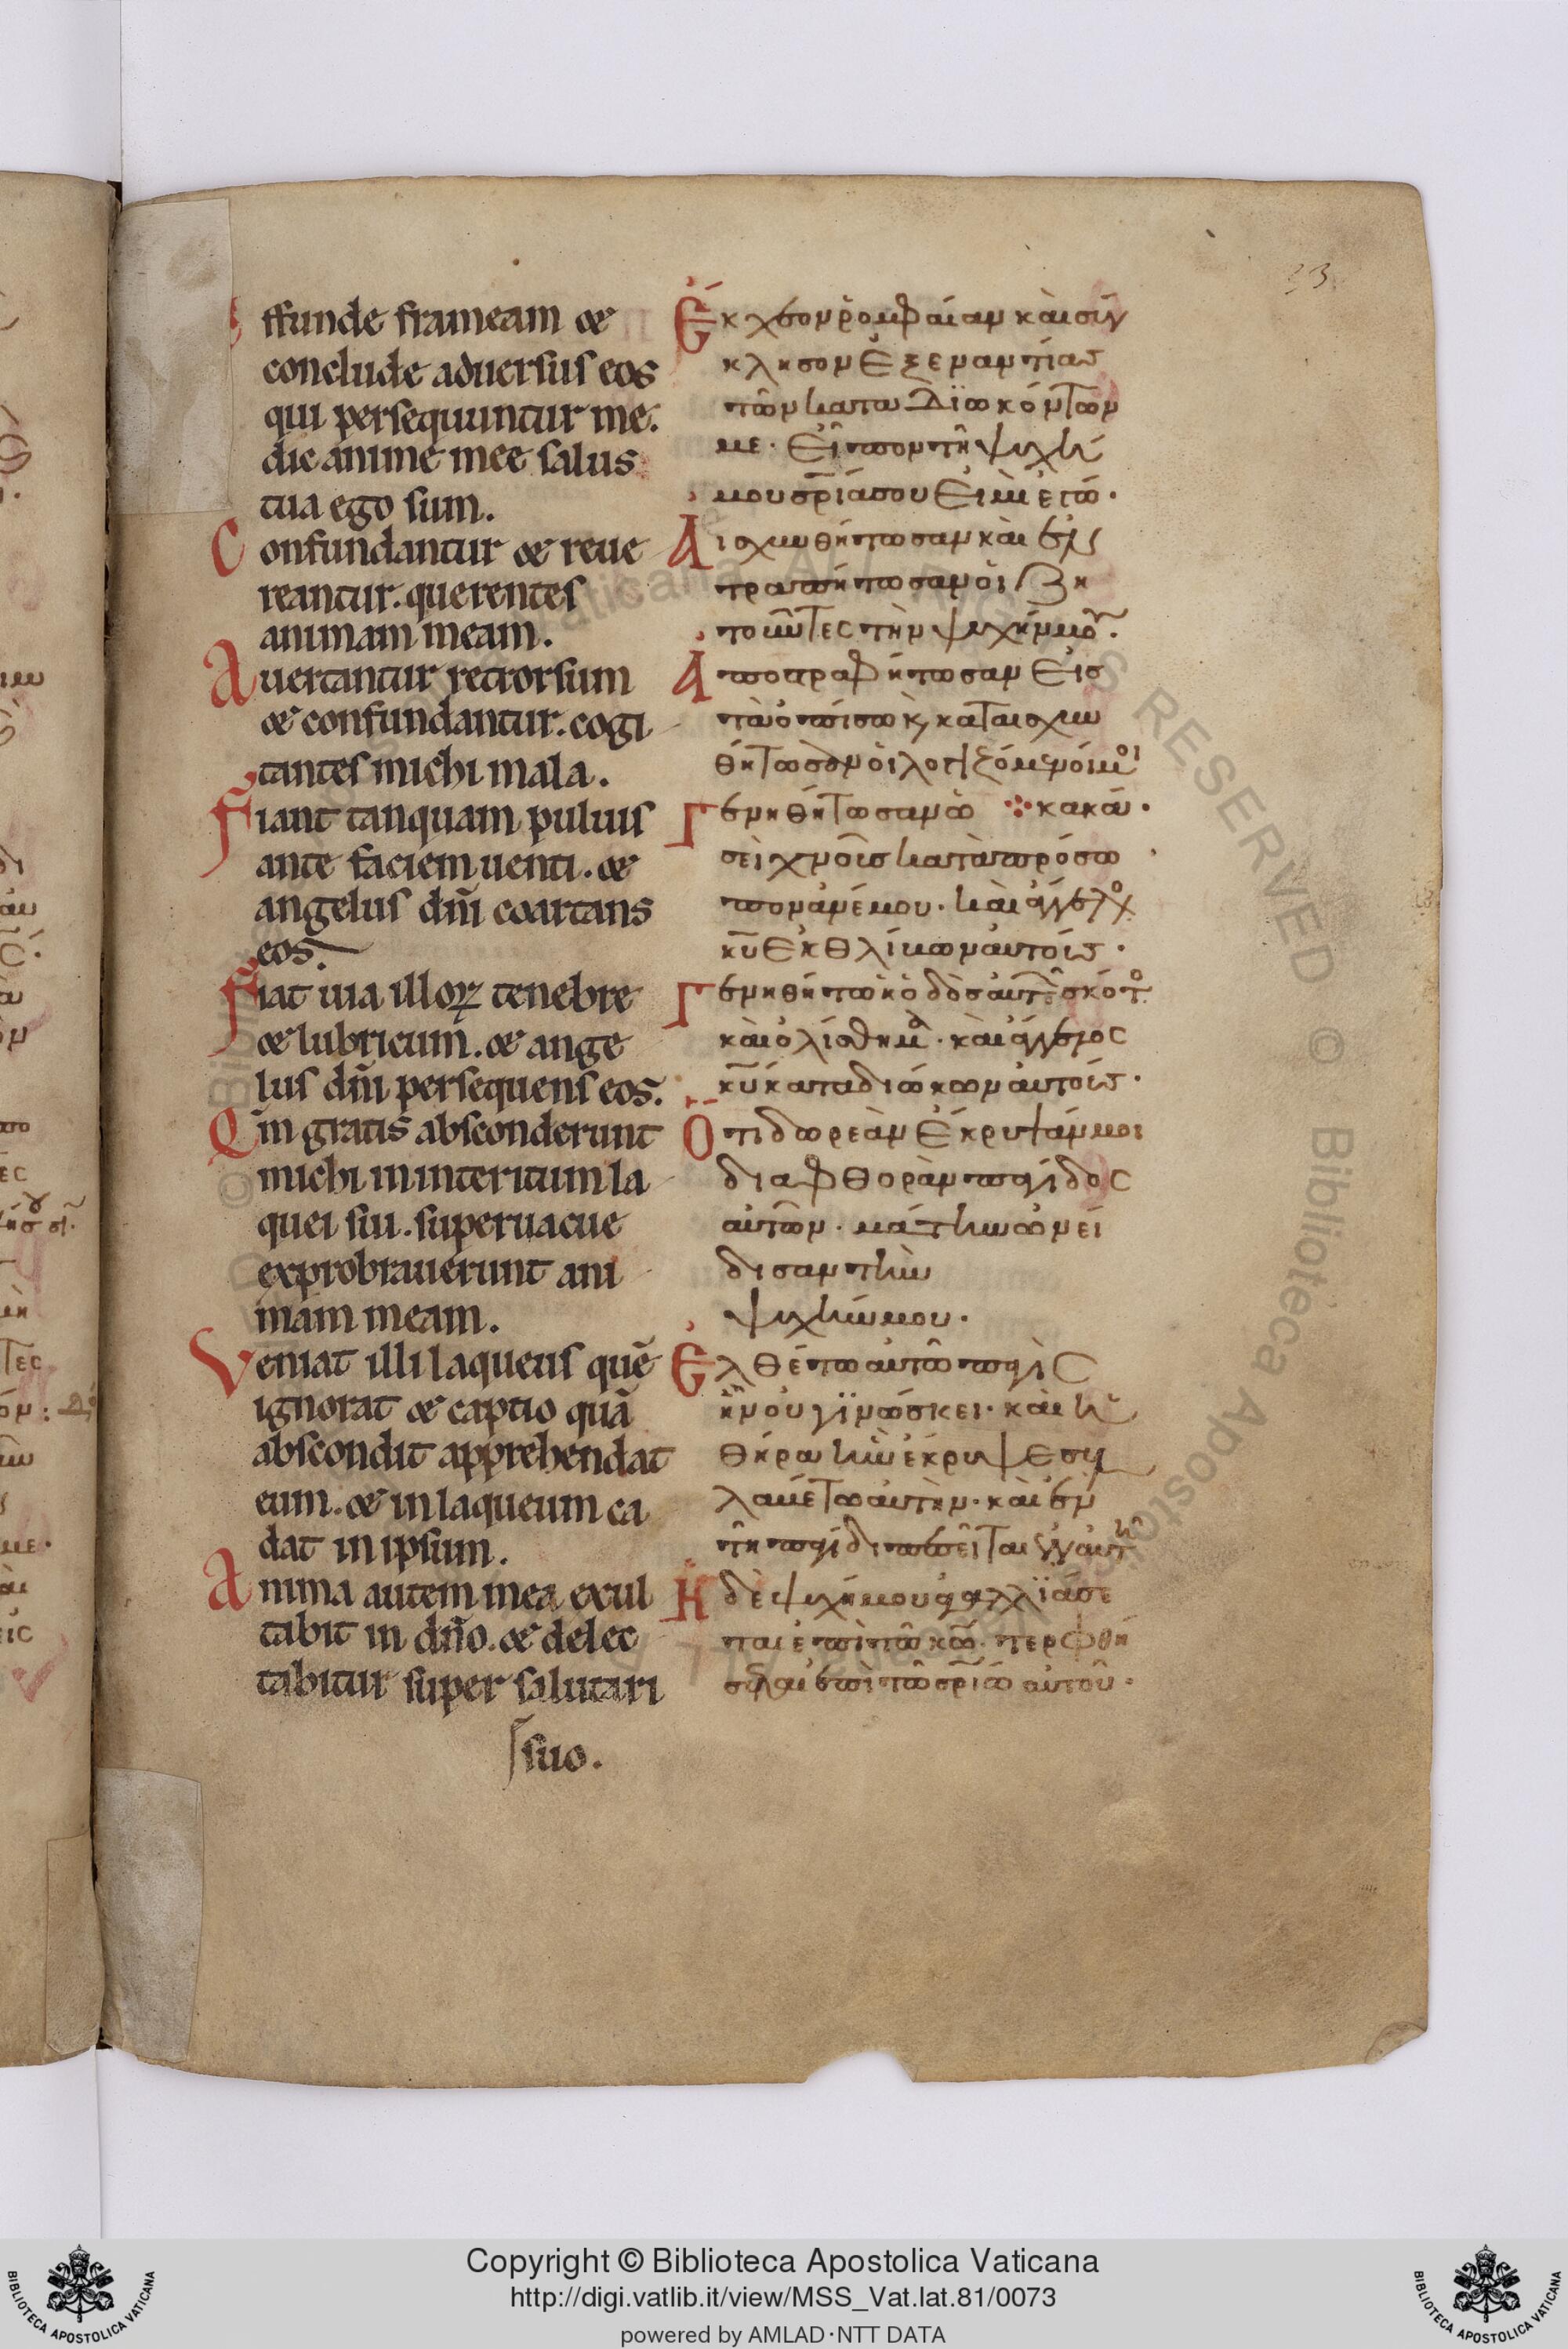 33
Effunde frameam &
conclude aduersus eos
qui persequuntur me.
dic anime mee salus
tua ego sum.
Confundantur & reue
reantur. querentes
animam meam.
Auertantur retrorsum
& confundantur. cogi
tantes michi mala.
Fiant tanquam puluis
ante faciem uenti. &
angelus dn̄i coartans
eos.
Fiat uia illoꝝ tenebre
& lubricum. & ange
lus dn̄i persequens eos.
Qm̄ gratis absconderunt
michi in interitum la
quei sui. superuacue
exprobrauerunt ani
mam meam.
Veniat illi laqueus quē
ignorat & captio quā
abscondit apprehendat
eum. & in laqueum ca
dat in ipsum.
Anima autem mea exul
tabit in dn̄o. & delec
tabitur super salutari
suo.
Ἔκχεον ῥομφαίαν καὶ σύγ
κλησον ἐξεναντίας
τῶν καταδϊωκόντων
με. Εἶπον τῆ ψυχῆ
μου σρ̄ία σου εἰμὶ ἐγώ.
Αἰσχυνθήτωσαν καὶ ἐν
τραπήτωσαν οἱ ζη
τοῦντες τὴν ψυχήν μου.
Ἀποστραφήτωσαν εἰσ
τὰ ὀπίσω κ̀ καταισχυν
θήτωσαν οἱ λογιζόμενοί μοι
Γενηθήτωσαν ὡ ⁘ κακά.
σεὶ χνοῦσ κατὰ πρόσω
πον ἀνέμου. καὶ ἄγγελος
κῡ ἐκθλίβων αὐτούς.
Γενηθήτω ἡ ὁδὸσ αὐτῶν σκότος
καὶ ὀλίσθημα. καὶ ἄγγελος
κῡ καταδιώκων αὐτούς.
Ὅτι δωρεὰν ἔκρυψάν μοι
διαφθορὰν παγίδος
αὐτῶν. μάτην ὠνεί
δισαν τὴν
ψυχήν μου.
Ἐλθέτω αὐτῶ παγὶς
ἣν οὐ γϊνώσκει. καὶ ἡ
θήρα ἣν ἔκρυψε συλ
λαβέτω αὐτὴν. καὶ ἐν
τῆ παγίδι πεσεῖται ἐν αὐτῆ
Ἡ δὲ ψυχή μου ἀγαλλϊάσε
ται ἐπὶ τῶ κω̄. τερφθή
σεται ἐπὶ τῶ σρ̄ίω αὐτοῦ.
Copyright © Biblioteca Apostolica Vaticana
http://digi.vatlib.it/view/MSS_Vat.lat.81/0073
powered by AMLAD·NTT DATA